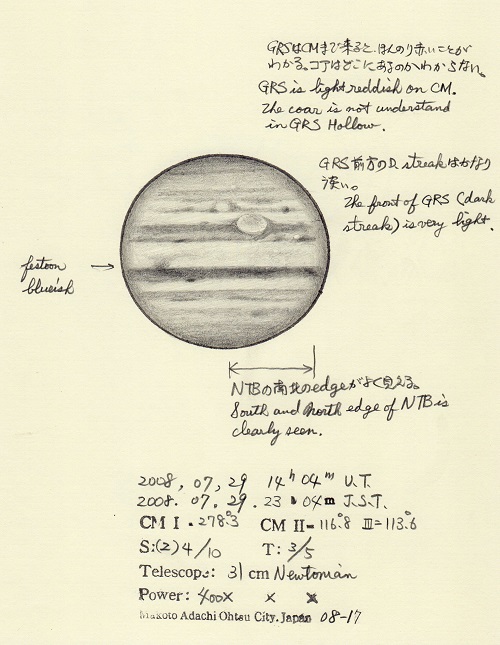 GRSはCMまで来ると、ほんのり赤いことが
わかる。コアはどこにあるのかわからない。
GRS is light reddish on CM.
The coar is not understand
in GRS Hollow.
GRS前方のD. streakはかなり
淡い。
The front of GRS (dark
streak) is very light.
festoon
blueish
NTBの南北のedgeがよく見える。
South and North edge of NTB is
clearly seen.
2008, 07, 29 14h 04m U.T.
2008. 07. 29. 23h 04m J.S.T.
CM I = 278.°3 CM II = 116.°8 III = 113.°6
S:(2)4/10 T: 3/5
Telescope: 31 cm Newtonian
Power: 400x x x
Makoto Adachi Ohtsu City. Japan 08-17